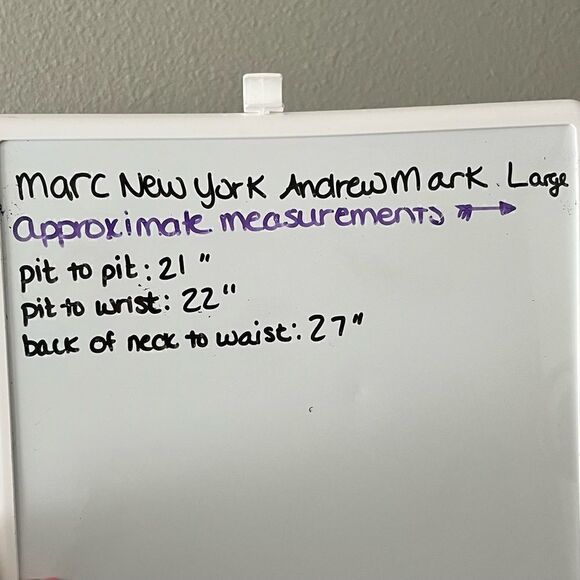 Marc New York Andrew Mark. Large
approximate measurements →
pit to pit: 21"
pit to wrist: 22"
back of neck to waist: 27"